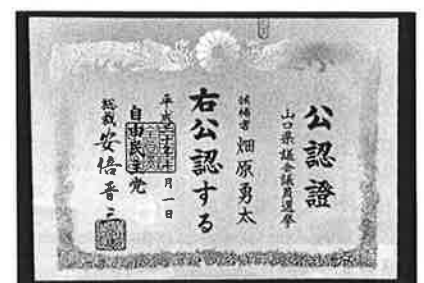 公認證
山口県議会議員選挙
候補者 畑原勇太
右公認する
平成二十七年 月一日
自由民主党
総裁 安倍晋三